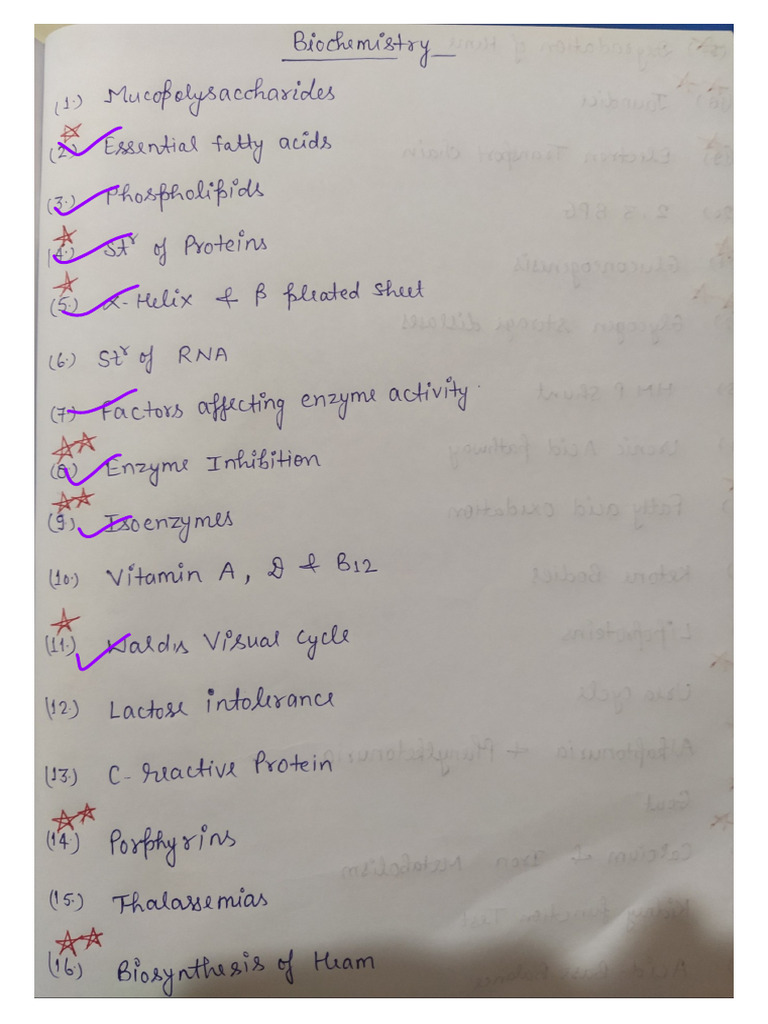 Biochemistry
(1.) Mucopolysaccharides
(2.) Essential fatty acids
(3.) Phospholipids
(4.) Strʳ of Proteins
(5.) α-Helix & β pleated sheet
(6.) Stʳ of RNA
(7.) Factors affecting enzyme activity.
(8.) Enzyme Inhibition
(9.) Isoenzymes
(10.) Vitamin A, D & B12
(11.) Walds Visual cycle
(12.) Lactose intolerance
(13.) C-reactive Protein
(14.) Porphyrins
(15.) Thalassemias
(16.) Biosynthesis of Heam